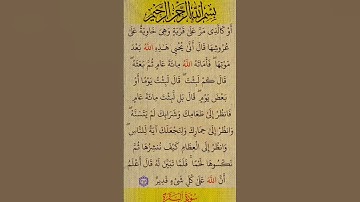 بسم الله الرحمن الرحيم
أَوْ كَالَّذِى مَرَّ عَلَىٰ قَرْيَةٍ وَهِىَ خَاوِيَةٌ عَلَىٰ
عُرُوشِهَا قَالَ أَنَّىٰ يُحْيِى هَٰذِهِ اللَّهُ بَعْدَ
مَوْتِهَا فَأَمَاتَهُ اللَّهُ مِائَةَ عَامٍ ثُمَّ بَعَثَهُ
قَالَ كَمْ لَبِثْتَ قَالَ لَبِثْتُ يَوْمًا أَوْ
بَعْضَ يَوْمٍ قَالَ بَل لَّبِثْتَ مِائَةَ عَامٍ
فَانظُرْ إِلَىٰ طَعَامِكَ وَشَرَابِكَ لَمْ يَتَسَنَّهْ
وَانظُرْ إِلَىٰ حِمَارِكَ وَلِنَجْعَلَكَ آيَةً لِّلنَّاسِ
وَانظُرْ إِلَى الْعِظَامِ كَيْفَ نُنشِزُهَا ثُمَّ
نَكْسُوهَا لَحْمًا فَلَمَّا تَبَيَّنَ لَهُ قَالَ أَعْلَمُ
أَنَّ اللَّهَ عَلَىٰ كُلِّ شَىْءٍ قَدِيرٌ
سورة البقرة